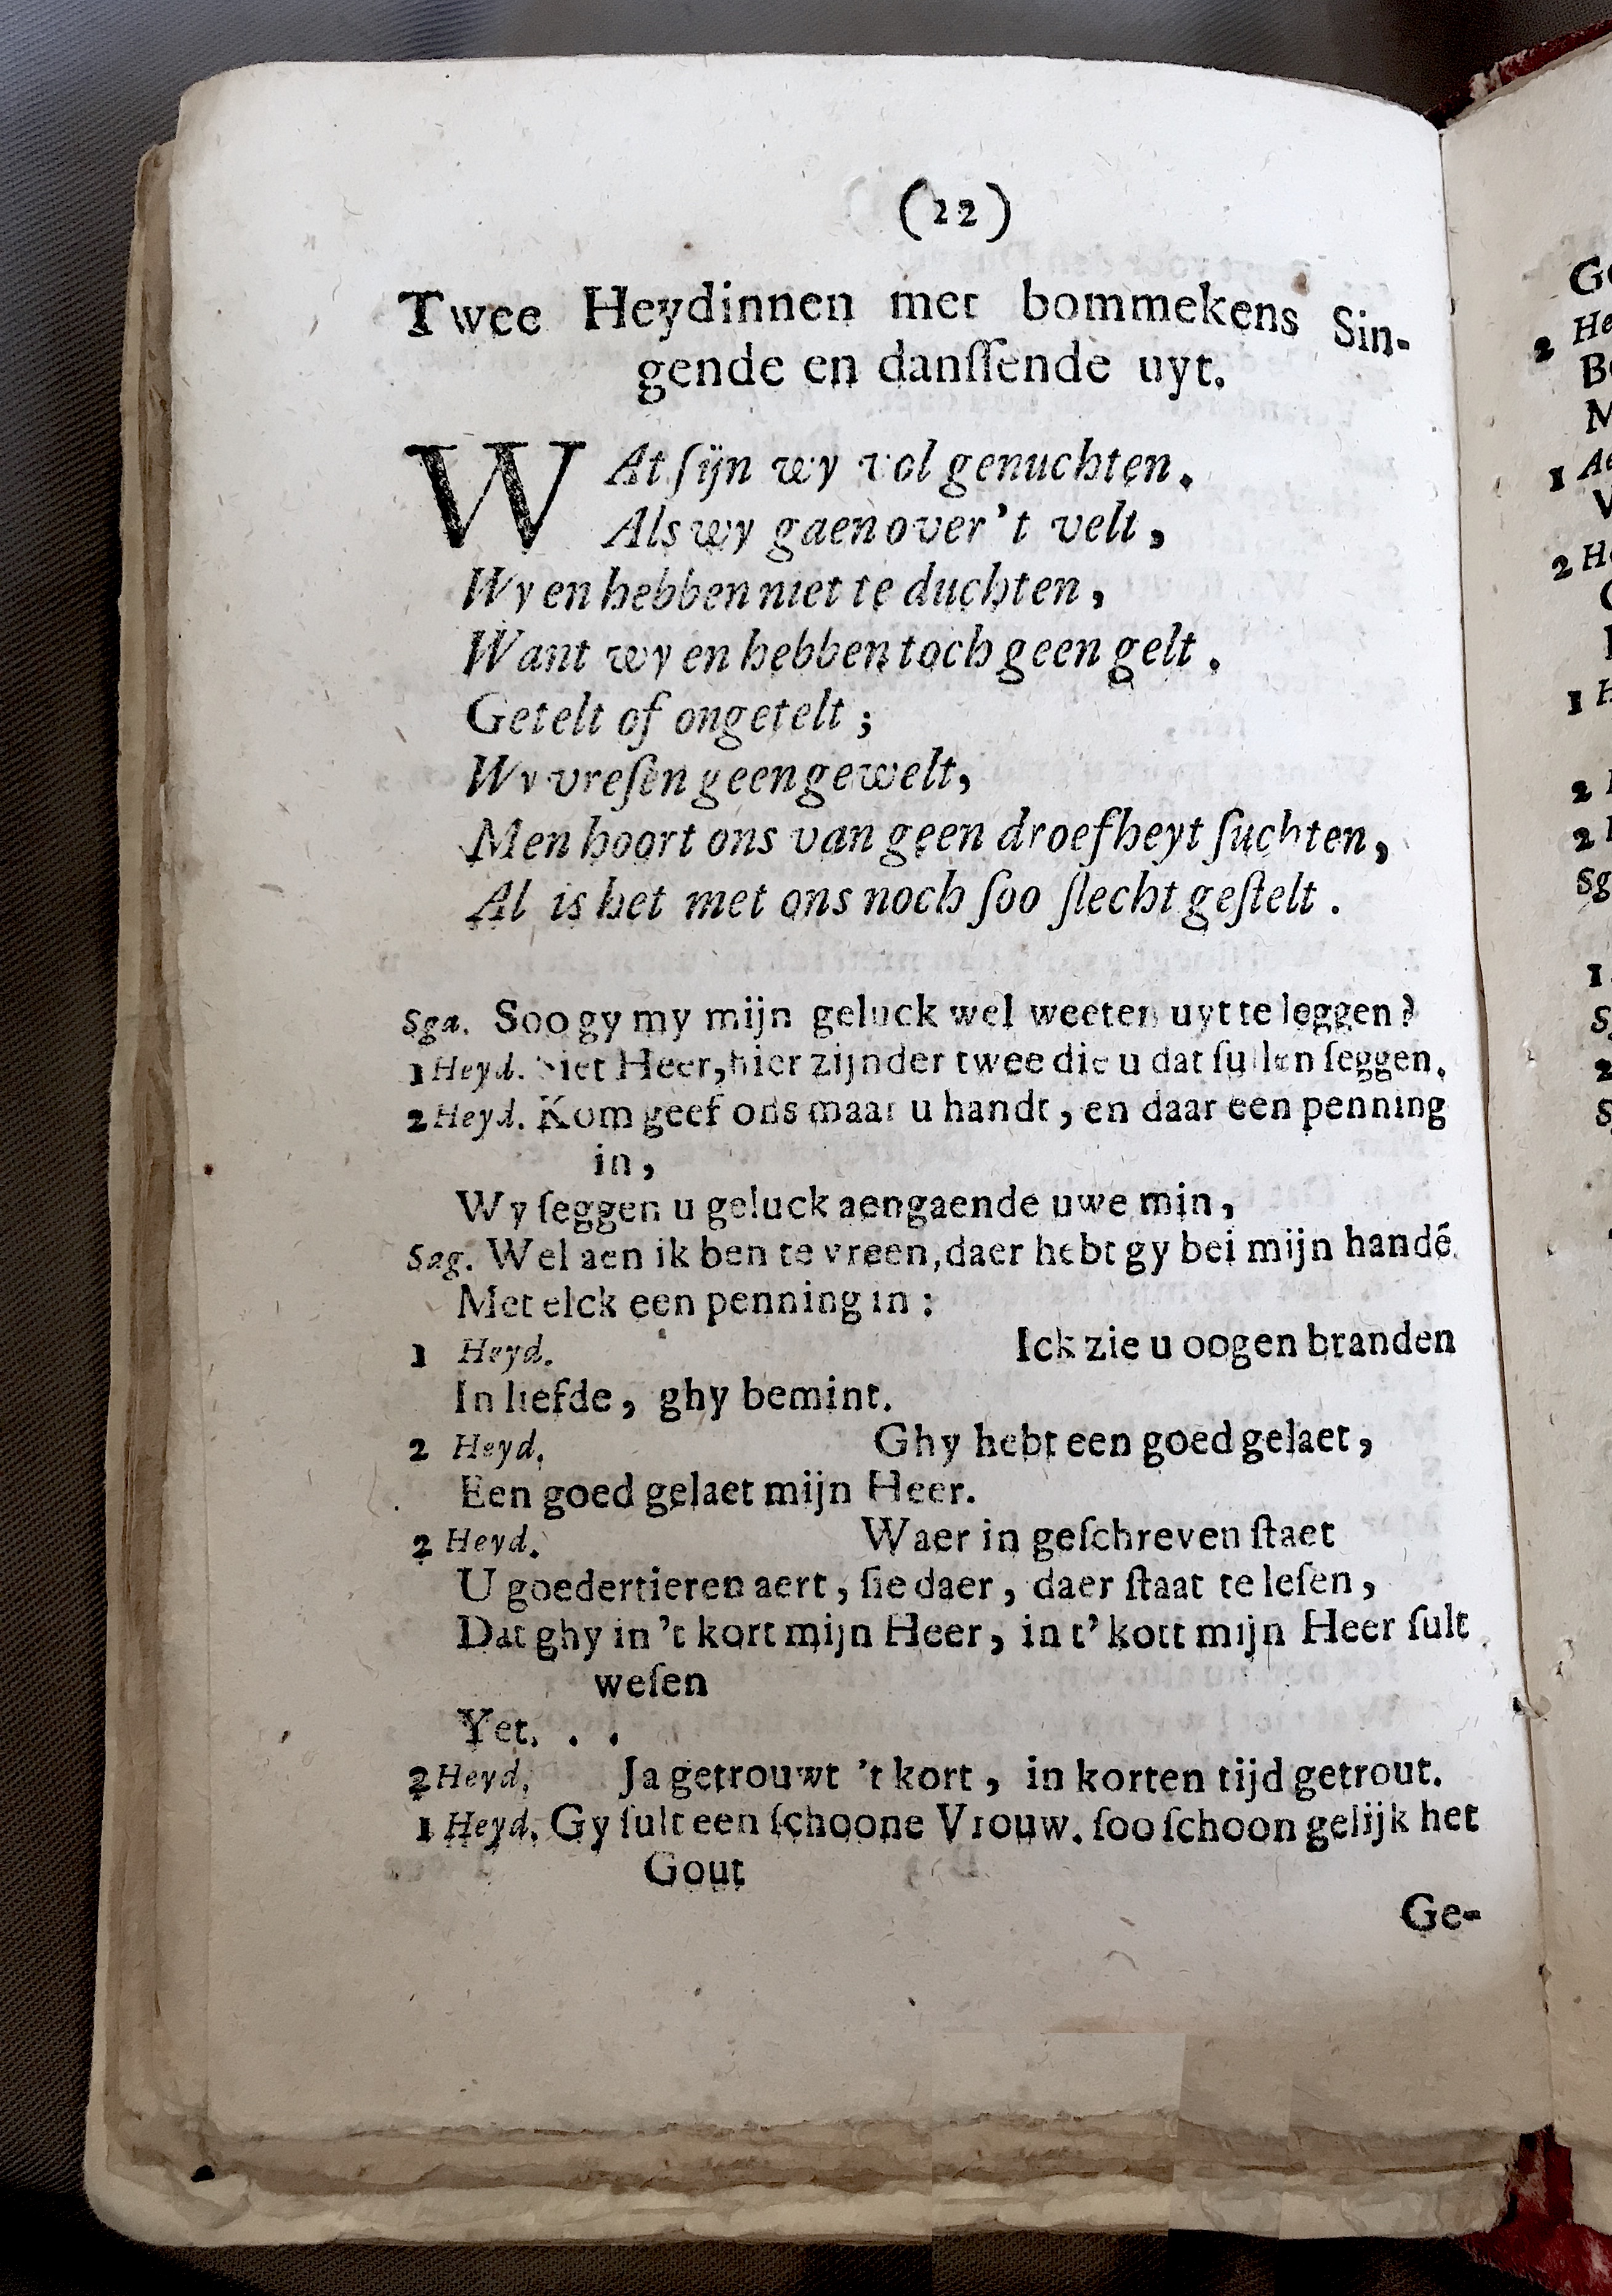 (22)
Twee Heydinnen met bommekens Sin-
gende en danſſende uyt.
WAt ſijn wy vol genuchten.
Als wy gaen over 't velt,
Wy en hebben niet te duchten,
Want wy en hebben toch geen gelt.
Getelt of ongetelt;
Wy vreſen geen gewelt,
Men hoort ons van geen droefheyt ſuchten,
Al is het met ons noch ſoo ſlecht geſtelt.
Sga. Soo gy my mijn geluck wel weeten uyt te leggen?
1 Heyd. Siet Heer, hier zijnder twee die u dat ſullen ſeggen.
2 Heyd. Kom geef ons maar u handt, en daar een penning
in,
Wy ſeggen u geluck aengaende uwe min,
Sag. Wel aen ik ben te vreen, daer hebt gy bei mijn handē
Met elck een penning in:
1 Heyd. Ick zie u oogen branden
In liefde, ghy bemint.
2 Heyd. Ghy hebt een goed gelaet,
Een goed gelaet mijn Heer.
2 Heyd. Waer in geſchreven ſtaet
U goedertieren aert, ſie daer, daer ſtaat te leſen,
Dat ghy in 't kort mijn Heer, in t' kort mijn Heer ſult
weſen
Yet. . .
2 Heyd. Ja getrouwt 't kort, in korten tijd getrout.
1 Heyd. Gy ſult een ſchoone Vrouw. ſoo ſchoon gelijk het
Gout
Ge-